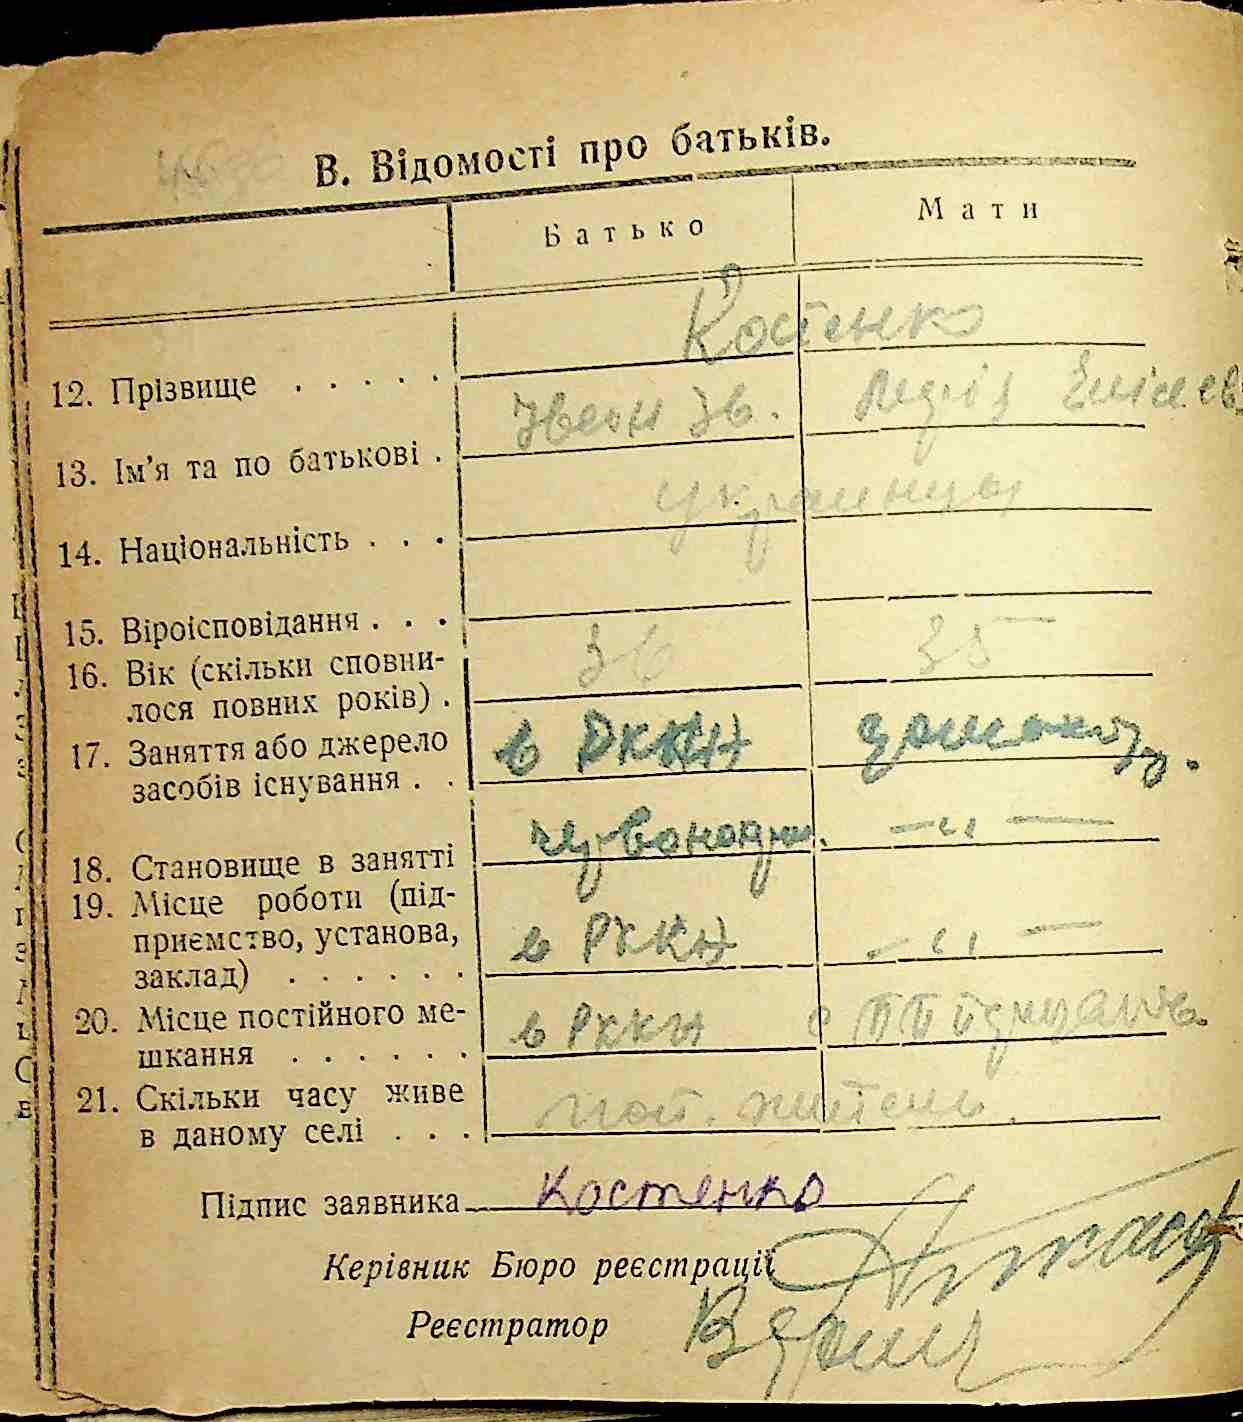 В. Відомості про батьків.
Батько Мати
Костенко
12. Прізвище . . . . .
Ів.
13. Ім'я та по батькові .
украинцы
14. Національність . . .
15. Віроісповідання . . .
36 35
16. Вік (скільки сповни-
лося повних років) .
в РККА
17. Заняття або джерело
засобів існування . .
червоноарм. —〃—
18. Становище в занятті
19. Місце роботи (під-
приємство, установа,
заклад) . . . . . .
в РККА —〃—
20. Місце постійного ме-
шкання . . . . . .
в РККА
21. Скільки часу живе
в даному селі . . .
пост. житель.
Підпис заявника Костенко
Керівник Бюро реєстрації
Реєстратор